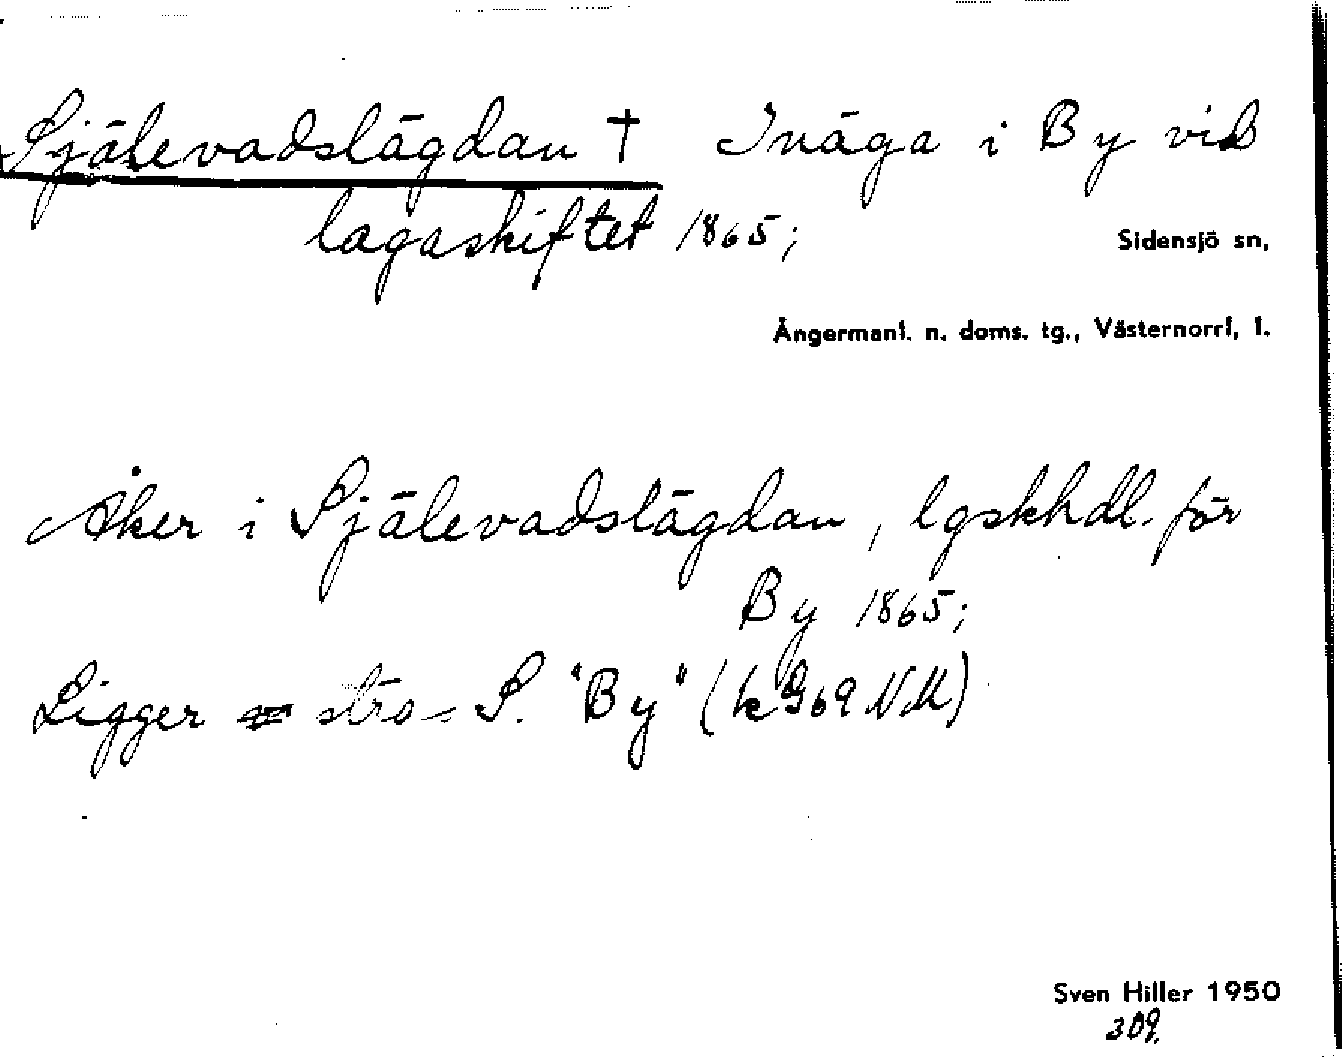 Själevadslägdan † Inäga i By vid
lagaskiftet 1865;
Sidensjö sn,
Ångermanl. n. doms. tg., Västernorrl, l.
Åker i Själevadslägdan, lgskhdl. för
By 1865;
Ligger strax S. "By" (k G69 NM)
Sven Hiller 1950
309.